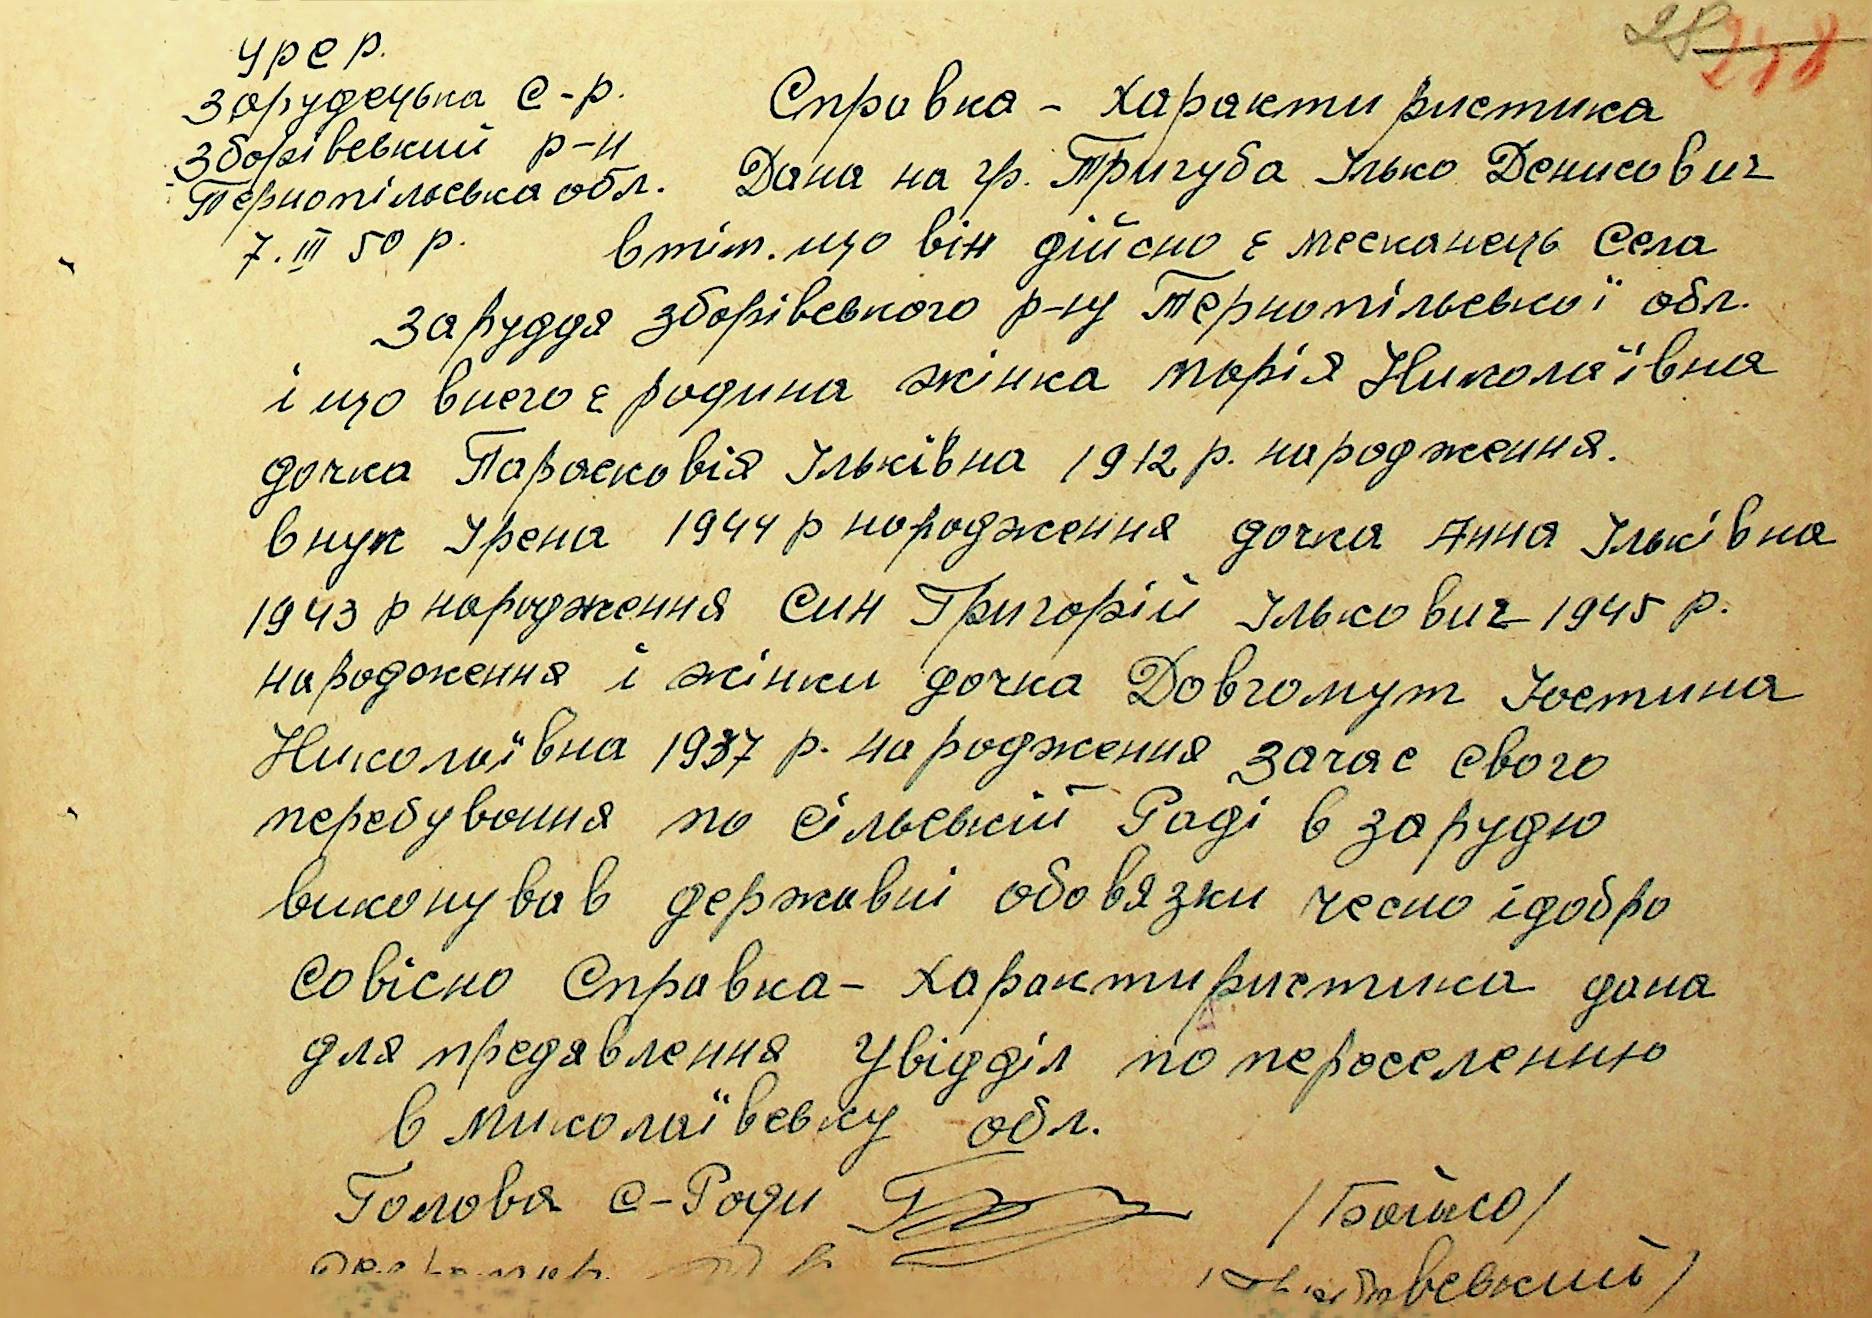 28 248
УРСР.
Зарудецька С-р.
Зборівський р-н
Тернопільська обл.
7. III 50 р.
Справка - характиристика
Дана на гр. Тригуба Ілько Денисович
втім. що він дійсно є месканець Села
Заруддя зборівського р-ну Тернопільської обл.
і що внего є родина жінка Марія Николаївна
дочка Парасковія Ільківна 1912 р. народження.
внук Ірена 1944 р народження дочка Анна Ільківна
1943 р народження Син Григорій Ількович 1945 р.
народження і жінки дочка Довгомут Юстина
Николаївна 1937 р. народження зачас свого
перебування по сільській Раді в зарудю
виконував державні обовязки чесно ідобро
совісно Справка - характиристика дана
для предявлення Увідділ по переселенню
в Миколаївську обл.
Голова С-Ради /Бойко/